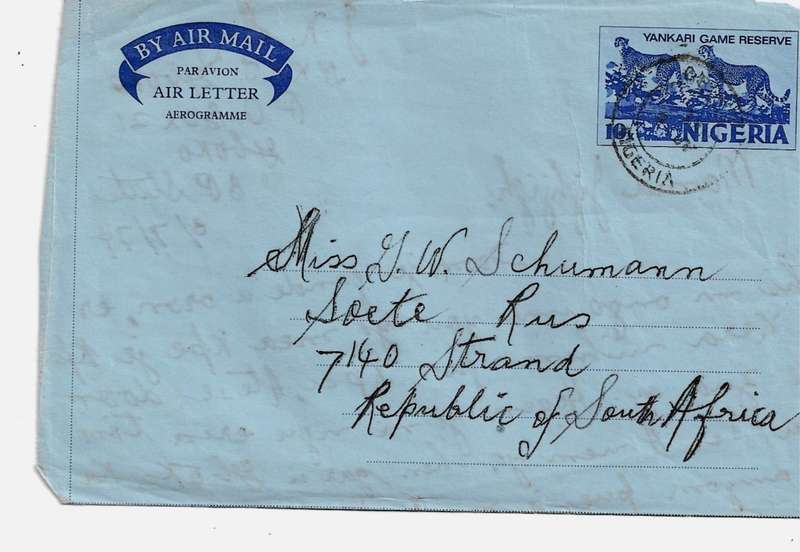 BY AIR MAIL
PAR AVION
AIR LETTER
AEROGRAMME
YANKARI GAME RESERVE
10k NIGERIA
NIGERIA
Miss G. W. Schumann
Soete Rus
7140 Strand
Republic of South Africa